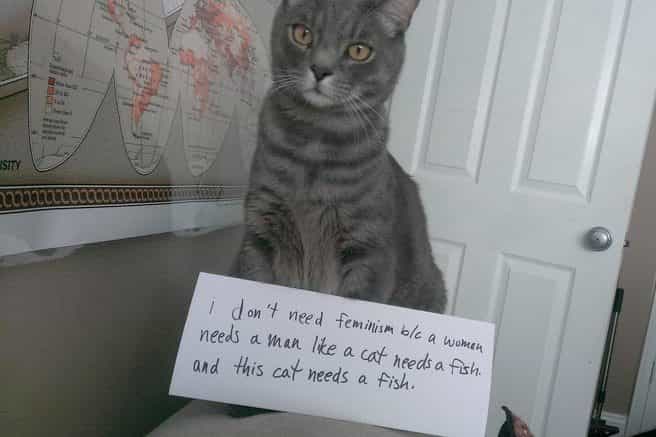 SITY
i don't need feminism b/c a woman
needs a man like a cat needs a fish.
and this cat needs a fish.